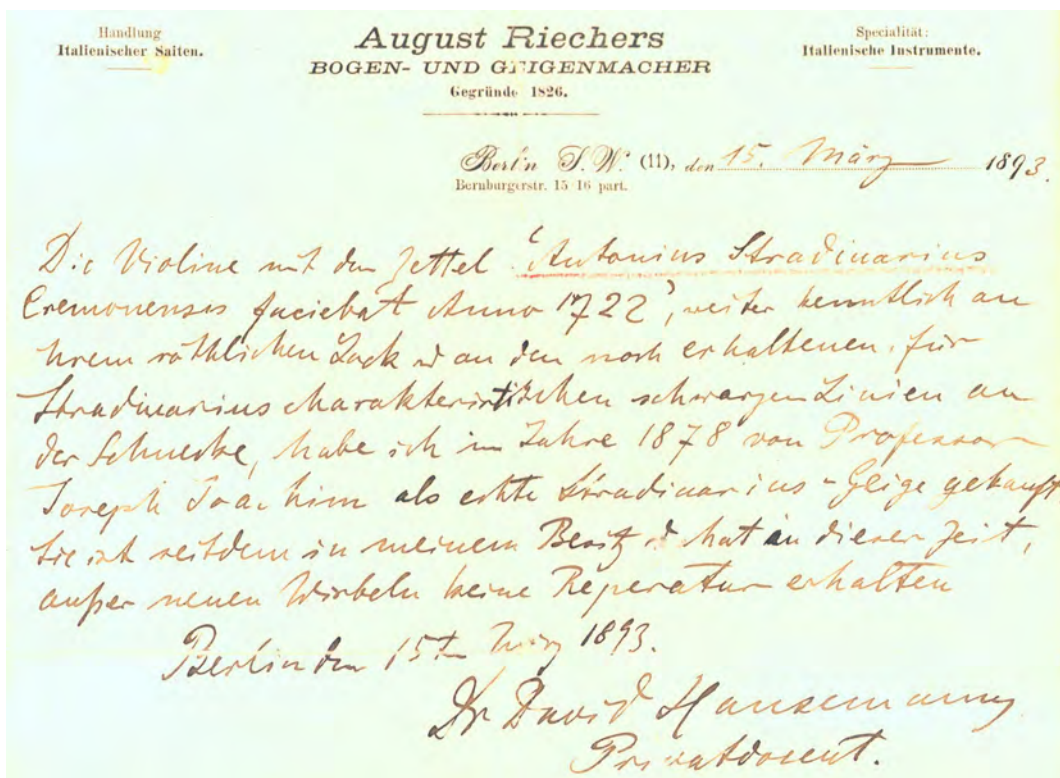 Handlung
Italienischer Saiten.
August Riechers
BOGEN- UND GEIGENMACHER
Gegründe 1826.
Specialität:
Italienische Instrumente.
Berlin S.W. (11), den 15. März 1893.
Bernburgerstr. 15 16 part.
Die Violine mit dem Zettel 'Antonius Stradiuarius
Cremonensis faciebat Anno 1722', weiter kenntlich an
ihrem röthlichen Lack u an den noch erhaltenen, für
Stradiuarius charakteristischen schwarzen Linien an
der Schnecke, habe ich im Jahre 1878 von Professor
Joseph Joachim als echte Stradiuarius-Geige gekauft
Sie ist seitdem in meinem Besitz u hat in dieser Zeit,
außer neuen Wirbeln keine Reperatur erhalten
Berlin den 15ten März 1893.
Dr David Hansemann
Privatdocent.